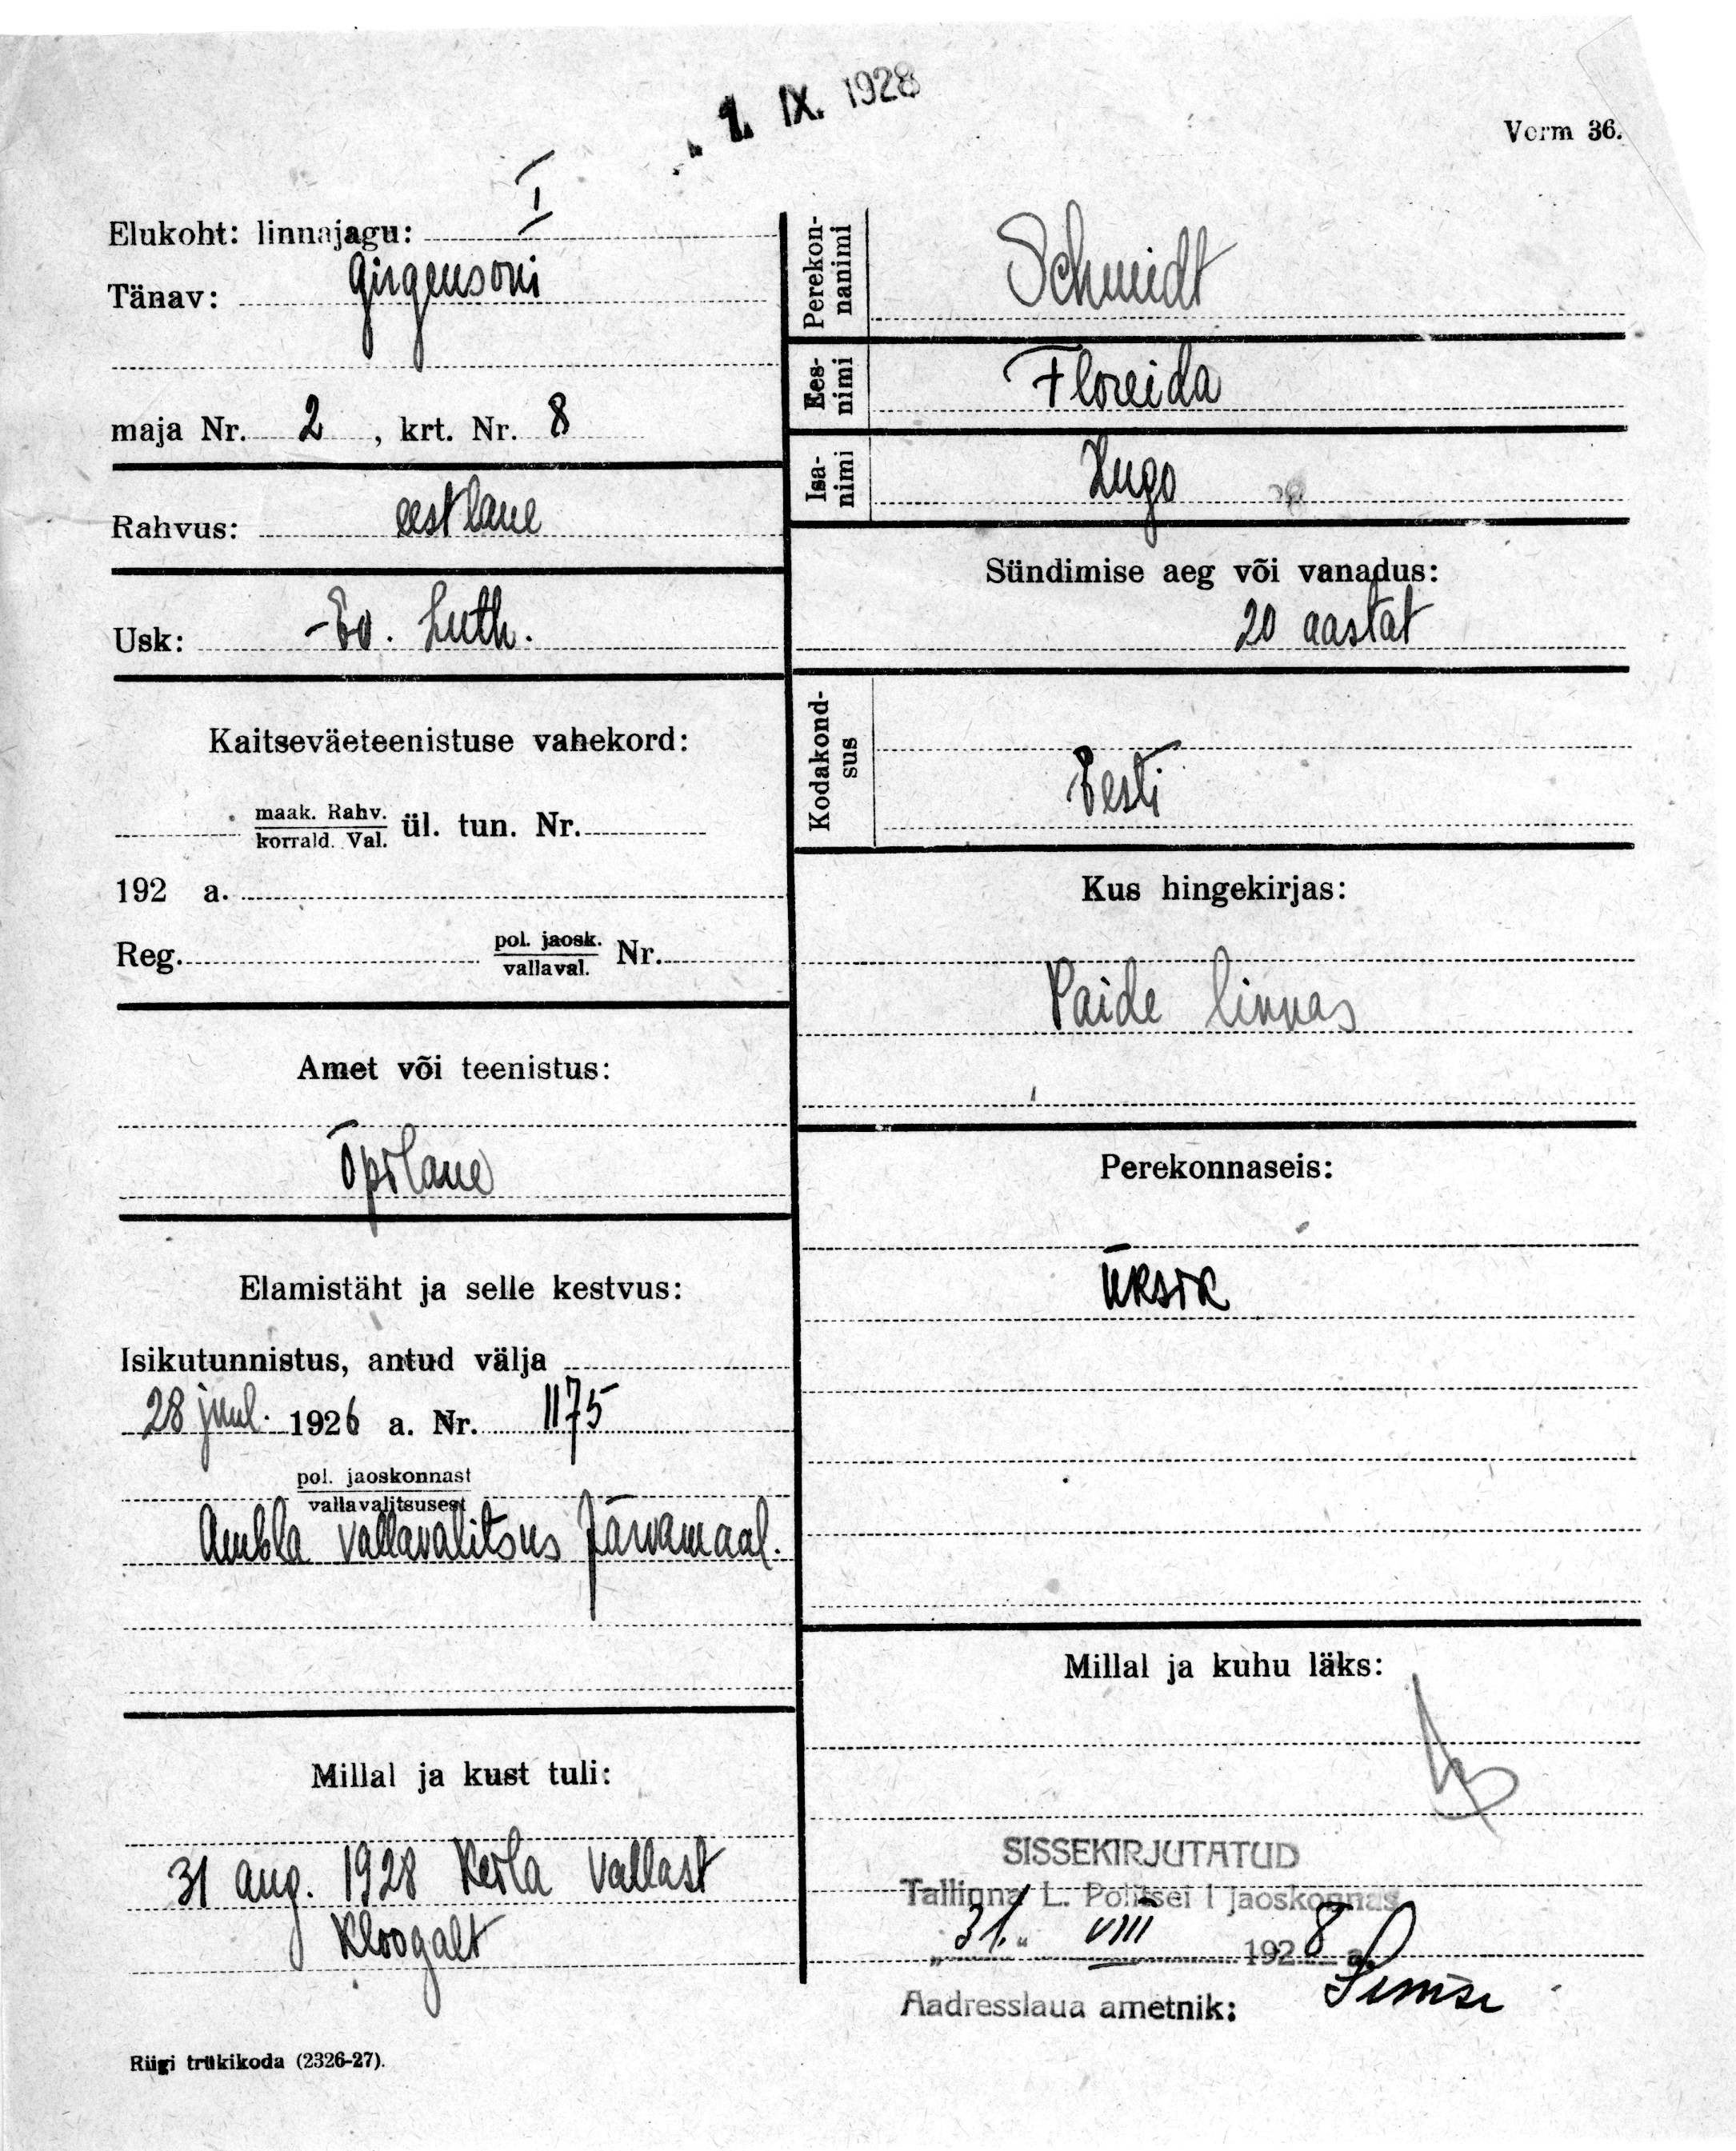 1. IX. 1928
Vorm 36.
Elukoht: linnajagu: I
Tänav: Girgensoni
maja Nr. 2, krt. Nr. 8
Rahvus: eestlane
Usk: Ev. Luth.
Kaitseväeteenistuse vahekord:
maak. Rahv.
korrald. Val. ül. tun. Nr.
192 a.
Reg. pol. jaosk.
vallaval. Nr.
Amet või teenistus:
Õpilane
Elamistäht ja selle kestvus:
Isikutunnistus, antud välja
28 juul. 1926 a. Nr. 1175
pol. jaoskonnast
vallavalitsusest
Ambla Vallavalitsus Järvamaal.
Millal ja kust tuli:
31 aug. 1928 Keila Vallast
Kloogalt
Riigi trükikoda (2326-27).
Perekon-
nanimi
Schmidt
Ees-
nimi
Floreida
Isa-
nimi
Hugo
Sündimise aeg või vanadus:
20 aastat
Kodakond-
sus
Eesti
Kus hingekirjas:
Paide linnas
Perekonnaseis:
Üksik
Millal ja kuhu läks:
SISSEKIRJUTATUD
Tallinna L. Politsei I jaoskonnas
„31.“ VIII 1928 a.
Aadresslaua ametnik: